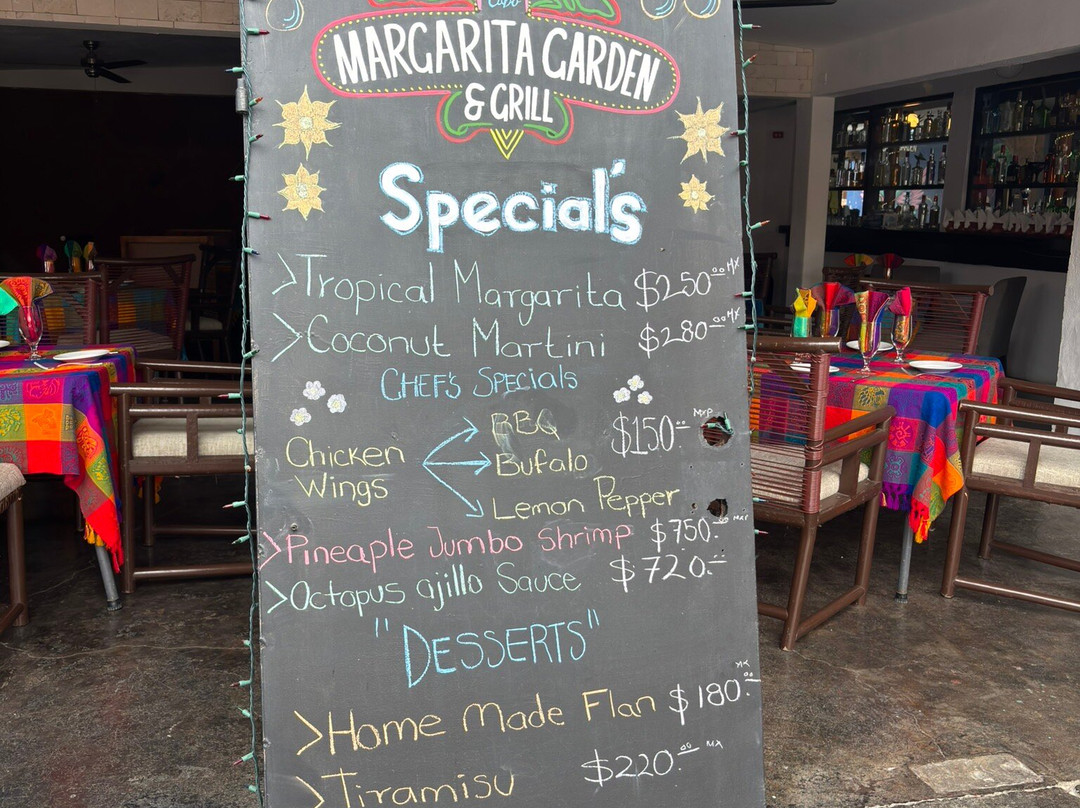 Cabo
MARGARITA GARDEN
& GRILL
Special's
>Tropical Margarita $250.00 MX
>Coconut Martini $280.00 MX
CHEF'S SPECIALS
BBQ $150.- MXP
Chicken Bufalo
Wings
Lemon Pepper
>Pineaple Jumbo Shrimp $750.00 MXP
>Octopus ajillo Sauce $720.-
"DESSERTS"
>Home Made Flan $180.00 MX
>Tiramisu $220.00 MX